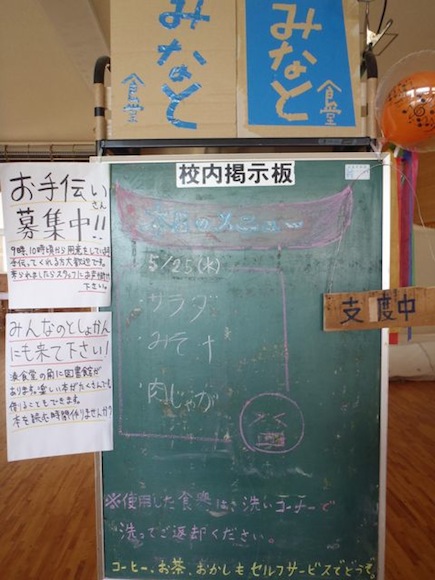 みなと
食堂
みなと
食堂
校内掲示板
お手伝いさん
募集中!!
9時、10時頃から用意をしています
手伝ってくれる方大歓迎です。
来られましたらスタッフにお声掛け
下さい。
みんなのとしょかん
にも来て下さい!
浜食堂の角に図書館が
あります。楽しい本がたくさんです。
借りることもできます。
本を読む時間作りませんか?
本日のメニュー
5/25(水)
・サラダ
・みそ汁
・肉じゃが
支度中
※使用した食器は、洗いコーナーで
洗ってご返却ください。
コーヒー、お茶、おかしもセルフサービスでどうぞ